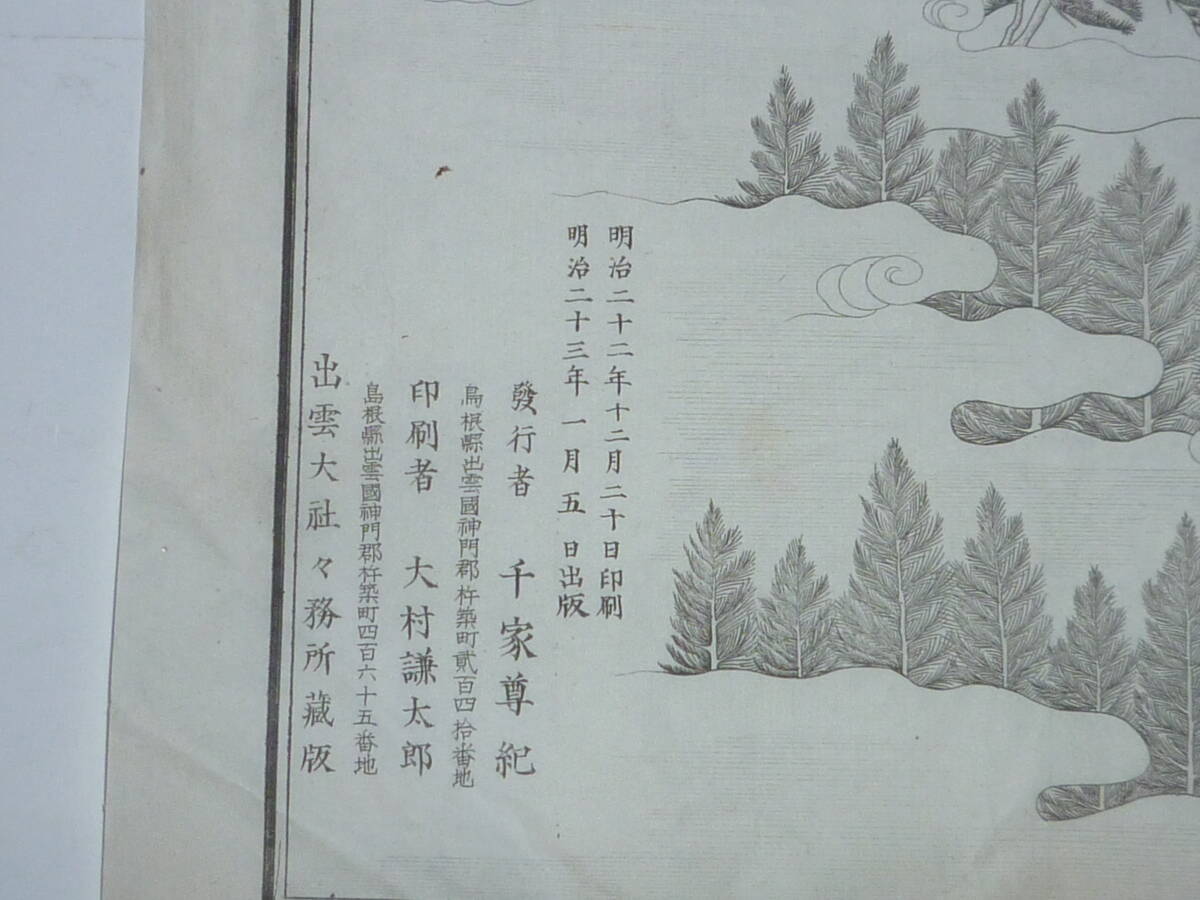 明治二十二年十二月二十日印刷
明治二十三年一月五日出版
發行者 千家尊紀
島根縣出雲國神門郡杵築町貳百四拾番地
印刷者 大村謙太郎
島根縣出雲國神門郡杵築町四百六十五番地
出雲大社々務所藏版